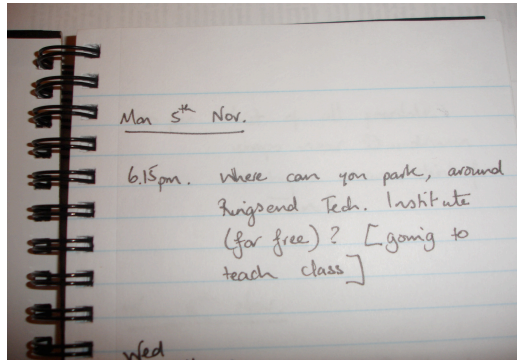 Mon 5th Nov.
6.15pm. Where can you park, around
Ringsend Tech. Institute
(for free)? [going to
teach class]
Wed